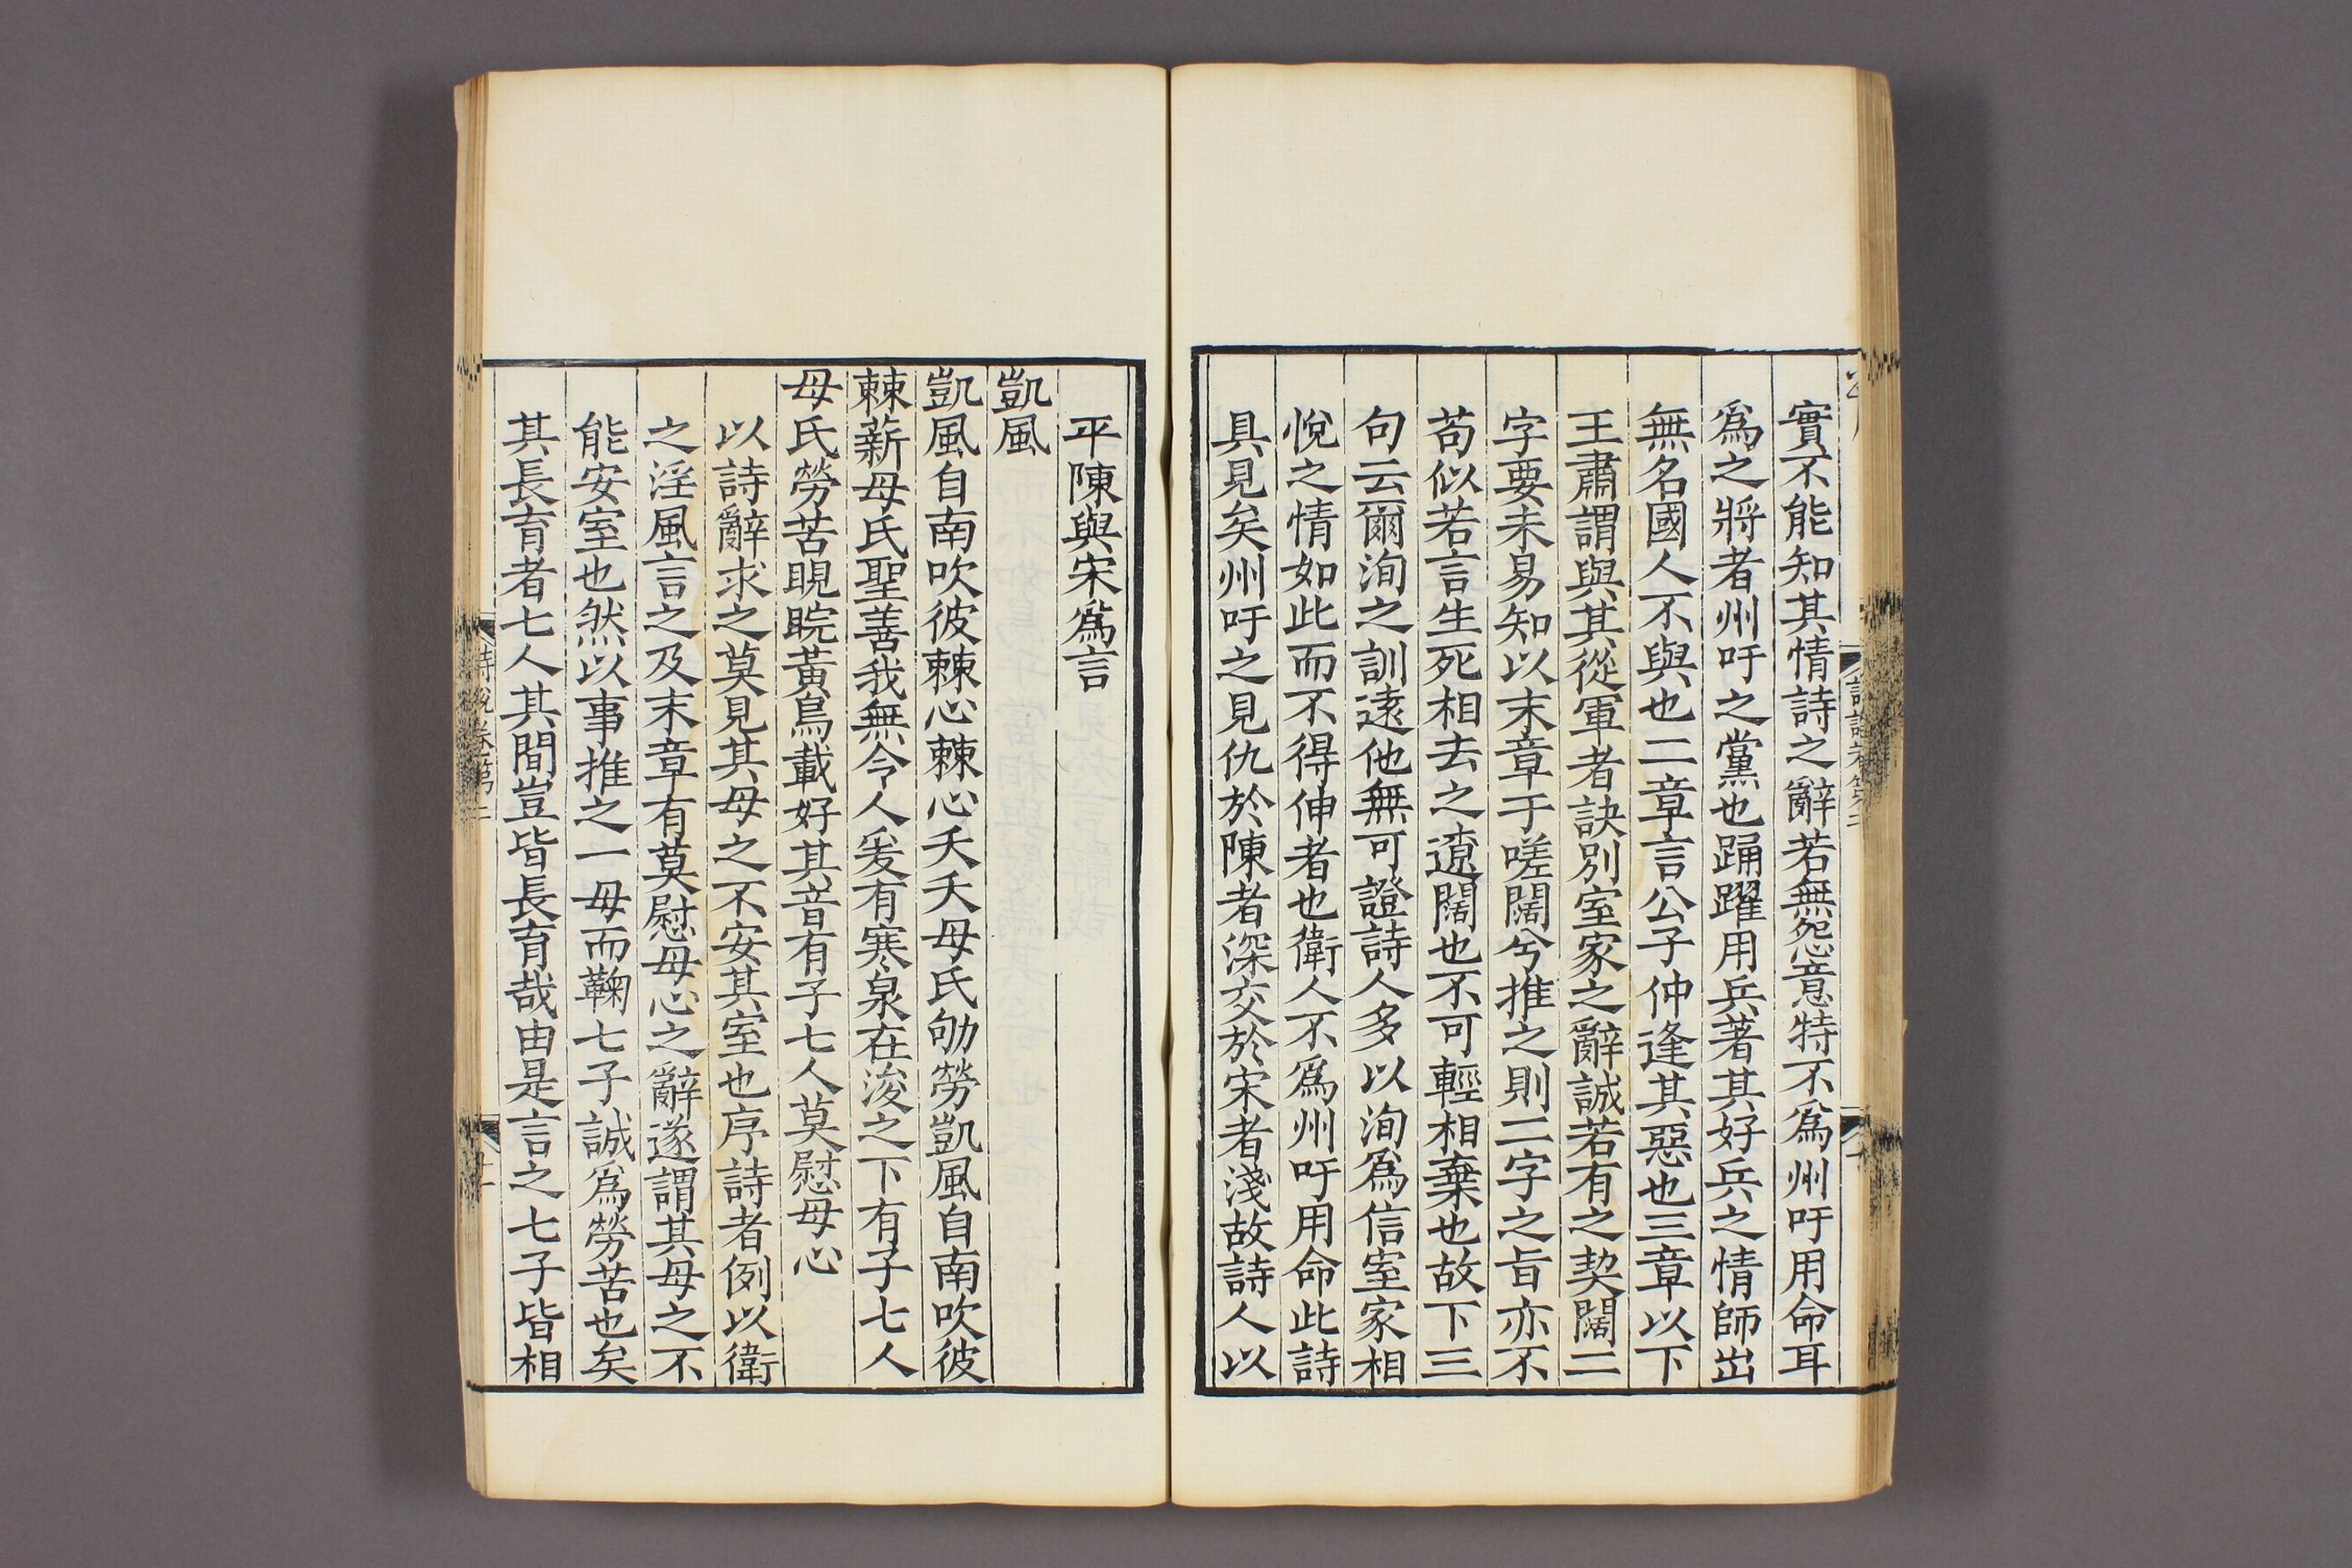 實不能知其情詩之辭若無怨意特不爲州吁用命耳
爲之將者州吁之黨也踊躍用兵著其好兵之情師出
無名國人不與也二章言公子仲逢其惡也三章以下
王肅謂與其從軍者訣別室家之辭誠若有之契闊二
字要未易知以末章于嗟闊兮推之則二字之旨亦不
苟似若言生死相去之遼闊也不可輕相棄也故下三
句云爾洵之訓遠他無可證詩人多以洵爲信室家相
悅之情如此而不得伸者也衛人不爲州吁用命此詩
具見矣州吁之見仇於陳者深交於宋者淺故詩人以
平陳與宋爲言
凱風
凱風自南吹彼棘心棘心夭夭母氏劬勞凱風自南吹彼
棘薪母氏聖善我無令人爰有寒泉在浚之下有子七人
母氏勞苦睍睆黃鳥載好其音有子七人莫慰母心
以詩辭求之莫見其母之不安其室也序詩者例以衛
之淫風言之及末章有莫慰母心之辭遂謂其母之不
能安室也然以事推之一母而鞠七子誠爲勞苦也矣
其長育者七人其間豈皆長育哉由是言之七子皆相
詩說卷第二